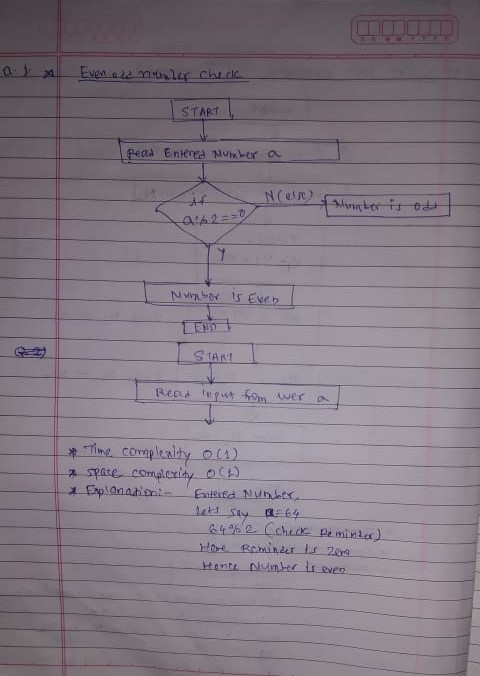 Q.1 * Even odd number check
START
Read Entered Number a
if
a%2==0
N(else)
Number is odd
Y
Number is Even
END
START
Read input from user a
* Time complexity O(1)
* space complexity O(1)
* Explanation:- Entered Number,
Lets say a=64
64%2 (check Reminder)
Here Reminder is zero
Hence Number is even